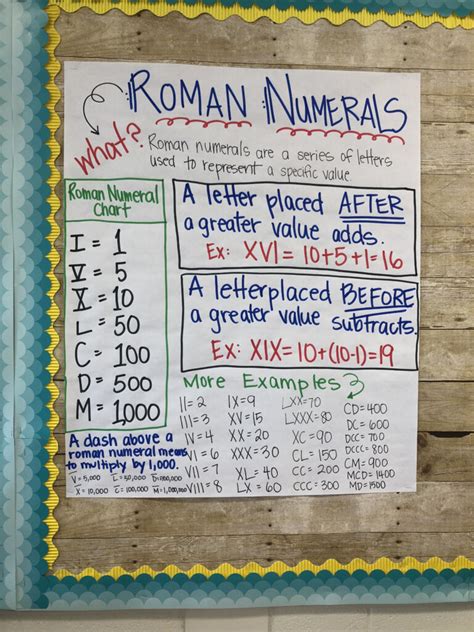 ROMAN NUMERALS
what?
Roman numerals are a series of letters
used to represent a specific value
Roman Numeral
Chart
I = 1
V = 5
X = 10
L = 50
C = 100
D = 500
M = 1,000
A letter placed AFTER
a greater value adds.
Ex: XVI = 10+5+1=16
A letter placed BEFORE
a greater value subtracts.
Ex: XIX= 10+(10-1)=19
More Examples
II = 2
III = 3
IV = 4
VI = 6
VII = 7
VIII = 8
IX = 9
XV = 15
XX = 20
XXX = 30
XL = 40
LX = 60
LXX = 70
LXXX = 80
XC = 90
CL = 150
CC = 200
CCC = 300
CD = 400
DC = 600
DCC = 700
DCCC = 800
CM = 900
MCD = 1400
MD = 1500
A dash above a
roman numeral means
to multiply by 1,000.
V̅ = 5,000 L̅ = 50,000 D̅ = 500,000
X̅ = 10,000 C̅ = 100,000 M̅ = 1,000,000